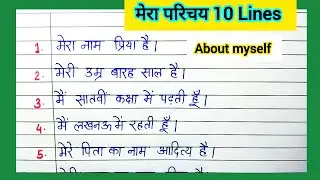 मेरा परिचय 10 Lines
About myself
1. मेरा नाम प्रिया है।
2. मेरी उम्र बारह साल है।
3. मैं सातवीं कक्षा में पढ़ती हूँ।
4. मैं लखनऊ में रहती हूँ।
5. मेरे पिता का नाम आदित्य है।